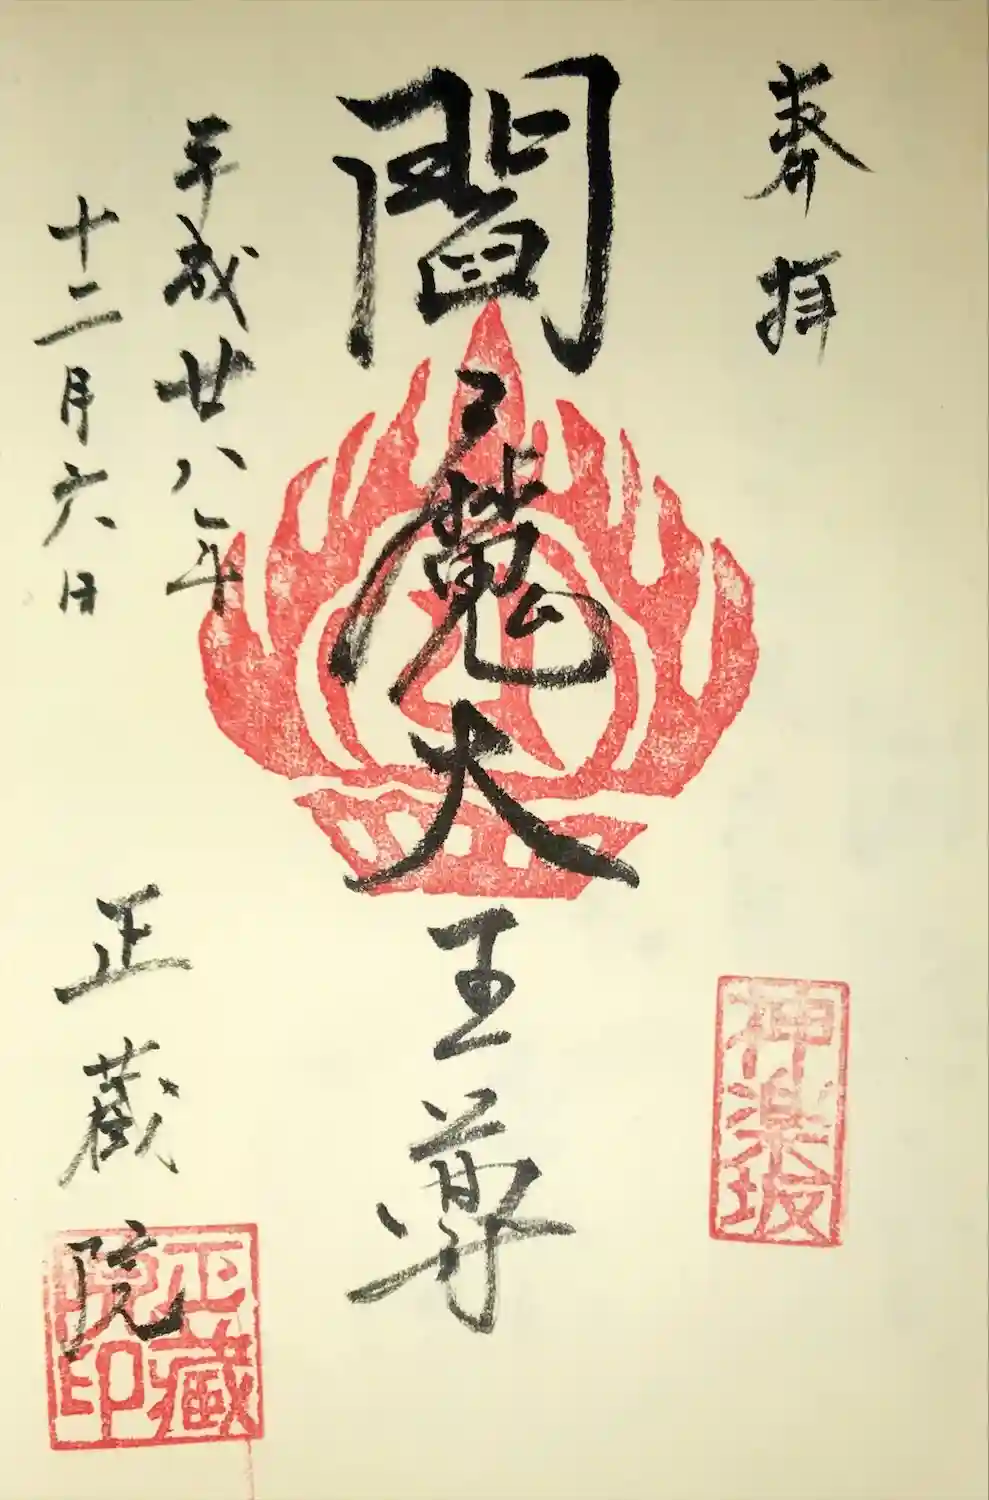 奉拝
神楽坂
閻魔大王尊
平成廿八年
十二月六日
正蔵院
正藏院印